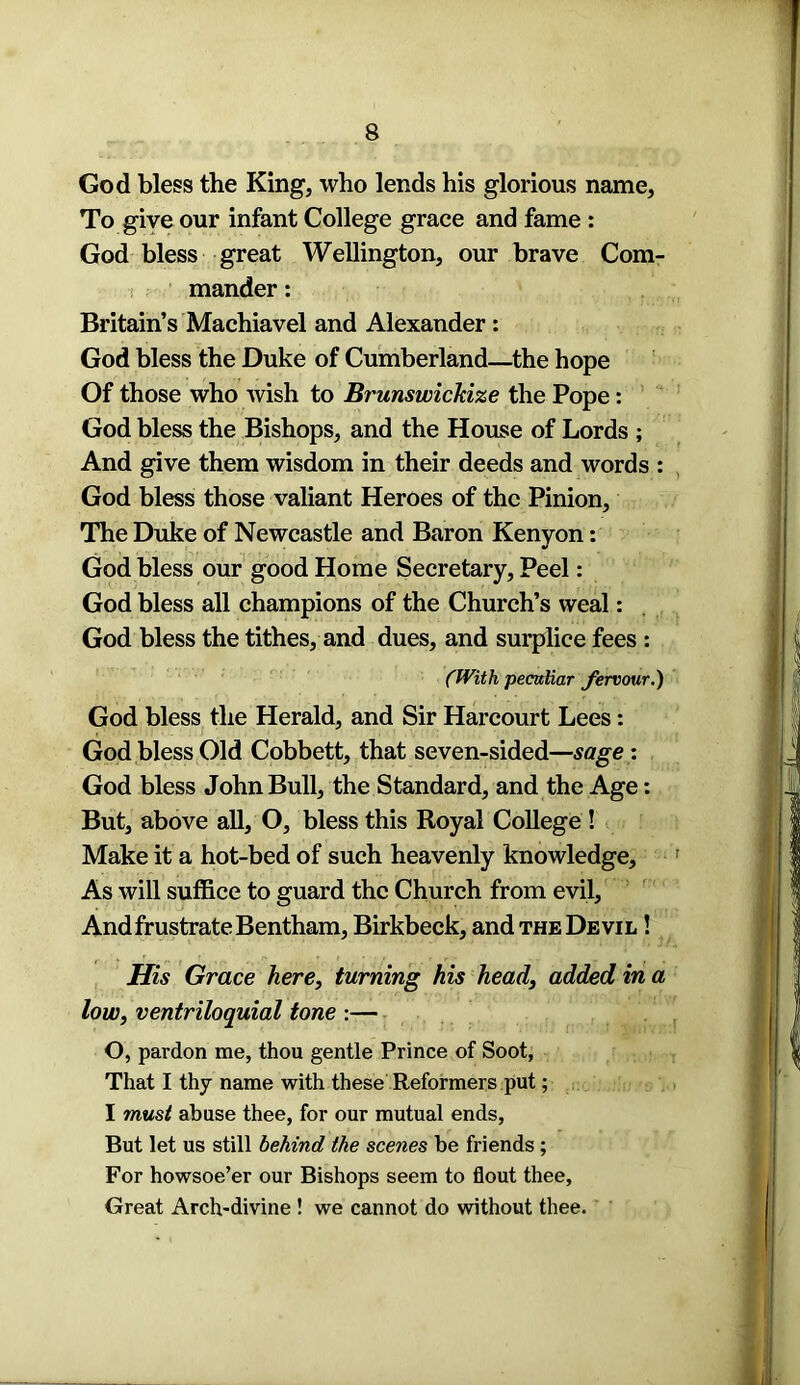 8
God bless the King, who lends his glorious name,
To give our infant College grace and fame :
God bless great Wellington, our brave Com-
mander :
Britain's Machiavel and Alexander :
God bless the Duke of Cumberland—the hope
Of those who wish to Brunswickize the Pope :
God bless the Bishops, and the House of Lords ;
And give them wisdom in their deeds and words :
God bless those valiant Heroes of the Pinion,
The Duke of Newcastle and Baron Kenyon :
God bless our good Home Secretary, Peel :
God bless all champions of the Church's weal :
God bless the tithes, and dues, and surplice fees :
(With peculiar fervour.)
God bless the Herald, and Sir Harcourt Lees :
God bless Old Cobbett, that seven-sided—sage :
God bless John Bull, the Standard, and the Age :
But, above all, O, bless this Royal College !
Make it a hot-bed of such heavenly knowledge,
As will suffice to guard the Church from evil,
And frustrate Bentham, Birkbeck, and THE DEVIL !
His Grace here, turning his head, added in a
low, ventriloquial tone :—
O, pardon me, thou gentle Prince of Soot,
That I thy name with these Reformers put ;
I must abuse thee, for our mutual ends,
But let us still behind the scenes be friends ;
For howsoe'er our Bishops seem to flout thee,
Great Arch-divine ! we cannot do without thee.